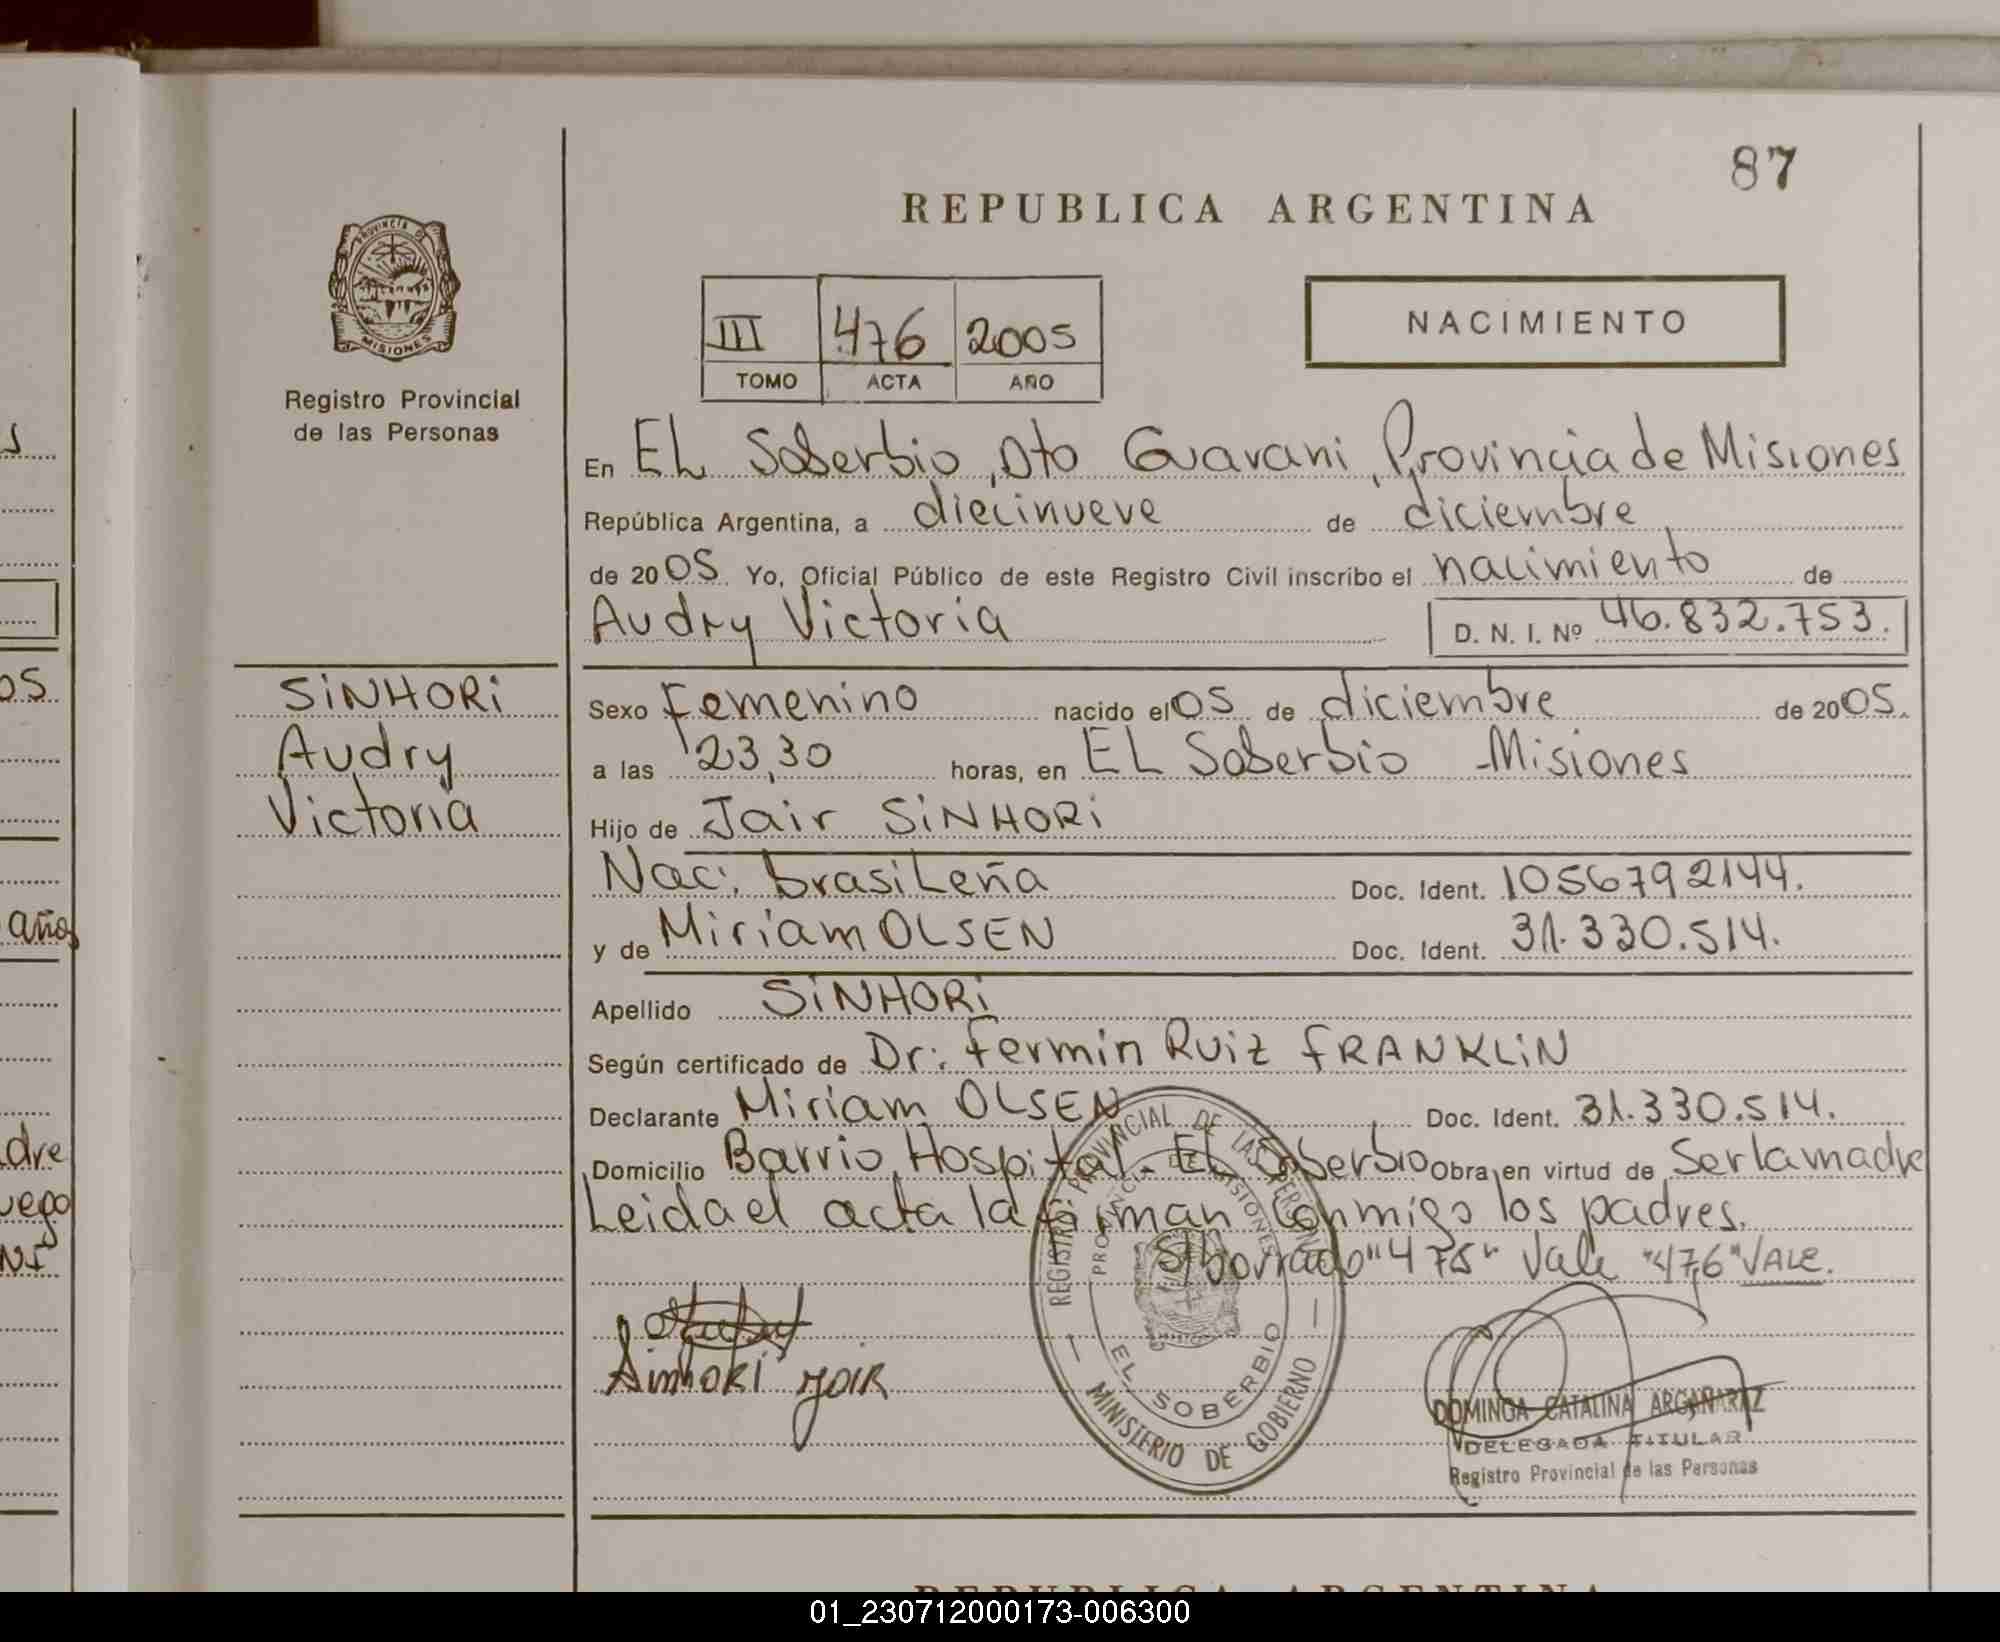 87
REPUBLICA ARGENTINA
PROVINCIA DE
MISIONES
Registro Provincial
de las Personas
III 476 2005
TOMO ACTA AÑO
NACIMIENTO
En EL Soberbio, Dto Guarani, Provincia de Misiones
República Argentina, a diecinueve de diciembre
de 2005 Yo, Oficial Público de este Registro Civil inscribo el nacimiento de
Audry Victoria D. N. I. Nº 46.832.753.
SiNHORi
Audry
Victoria
Sexo Femenino nacido el 05 de diciembre de 2005.
a las 23,30 horas, en EL Soberbio - Misiones
Hijo de Jair SiNHORi
Nac. brasiLeña Doc. Ident. 1056792144.
y de Miriam OLSEN Doc. Ident. 31.330.514.
Apellido SiNHORi
Según certificado de Dr: Fermin Ruiz FRANKLiN
Declarante Miriam OLSEN Doc. Ident. 31.330.514.
Domicilio Barrio Hospital - EL Soberbio Obra en virtud de Ser la madre
Leida el acta la firman conmigo los padres.
S/borrado "475" Vale "476" VALE.
REGISTRO PROVINCIAL DE LAS PERSONAS
PROVINCIA DE MISIONES
EL SOBERBIO
MINISTERIO DE GOBIERNO
SinhORi JOIR
DOMINGA CATALINA ARGAÑARAZ
DELEGADA TITULAR
Registro Provincial de las Personas
REPUBLICA ARGENTINA
os
años
dre
01_230712000173-006300